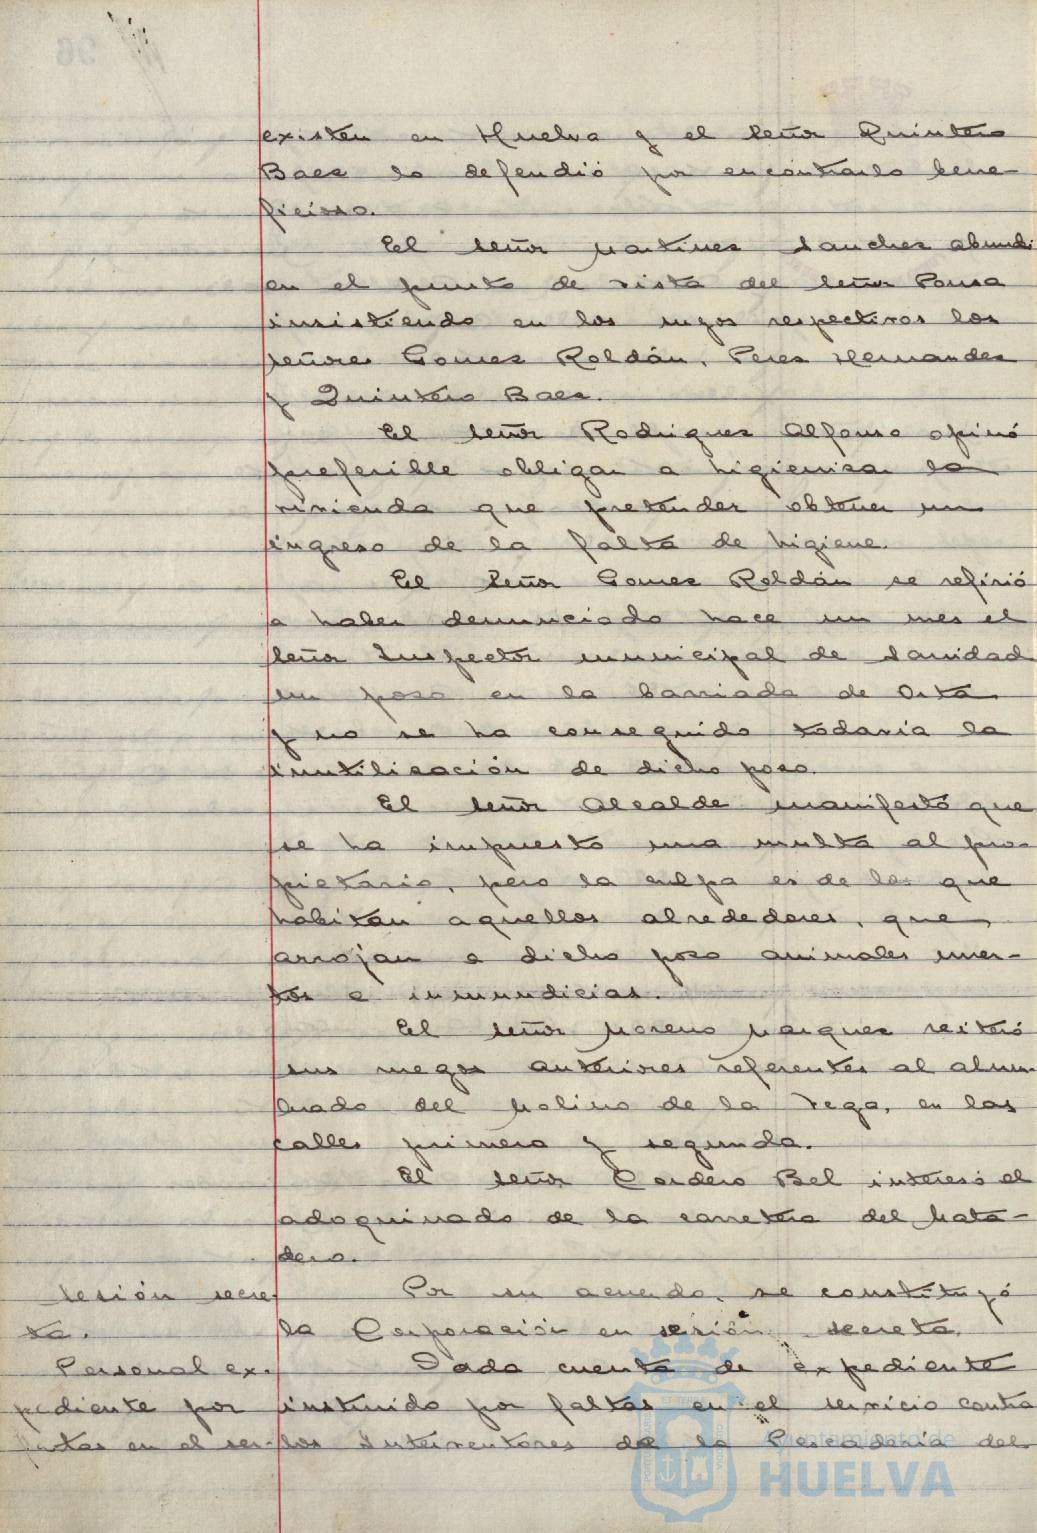 existen en Huelva y el señor Quintero
Baez lo defendió por encontrarlo bene-
ficioso.
El señor Martinez Sanchez abundó
en el punto de vista del señor Pousa
insistiendo en los suyos respectivos los
señores Gomez Roldán, Perez Hernandez
y Quintero Baez.
El señor Rodriguez Alfonso opinó
preferible obligar a higienizar la
vivienda que pretender obtener un
ingreso de la falta de higiene.
El Señor Gomez Roldán se refirió
a haber denunciado hace un mes el
señor Inspector municipal de Sanidad
un pozo en la barriada de Orta
y no se ha conseguido todavia la
inutilización de dicho pozo.
El señor Alcalde manifestó que
se ha impuesto una multa al pro-
pietario, pero la culpa es de los que
habitan aquellos alrededores, que
arrojan a dicho pozo animales muer-
tos e inmundicias.
El señor Moreno Marquez reiteró
sus ruegos anteriores referentes al alum-
brado del Molino de la Vega, en las
calles primera y segunda.
El señor Cordero Bel interesó el
adoquinado de la carretera del Mata-
dero.
Sesión secre-
ta.
Por su acuerdo, se constituyó
la Corporación en sesión secreta.
Personal ex-
pediente por
faltas en el ser-
Dada cuenta de expediente
instruido por faltas en el servicio contra
los Interventores de la Pescadería del
Ayuntamiento de
HUELVA